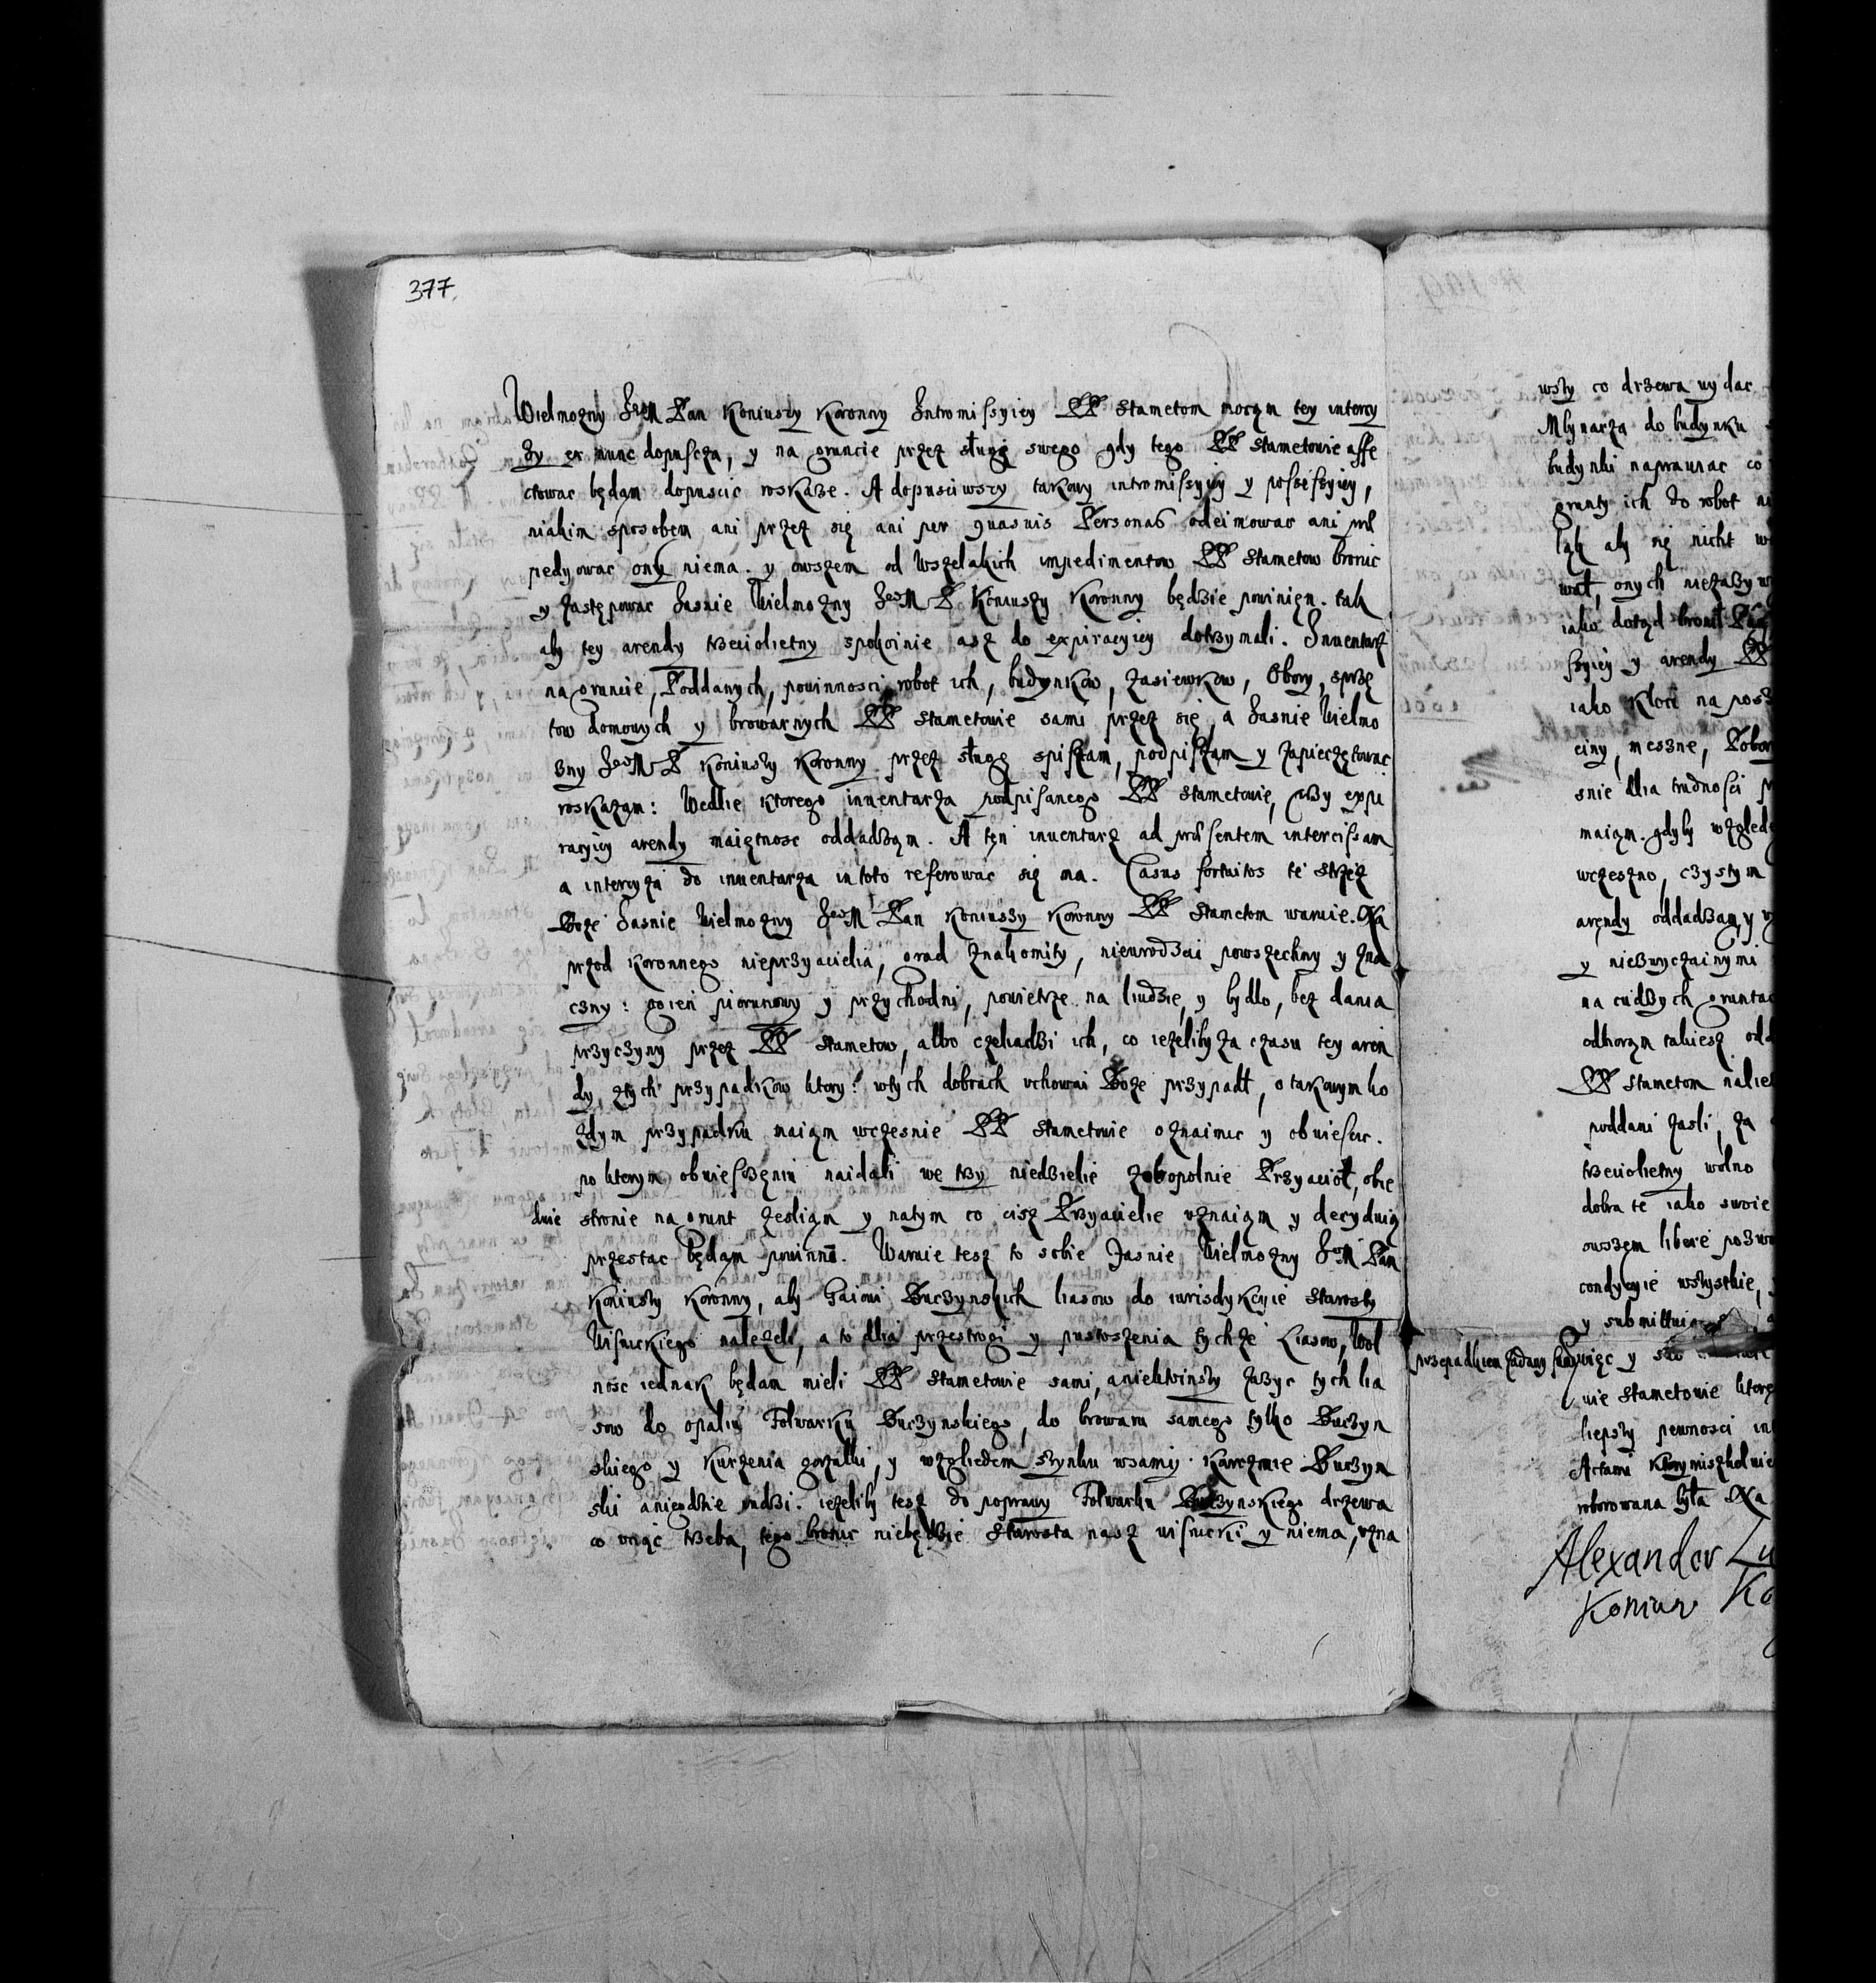 377.
Wielmozny JegoM Pan Koniuszy Koronny Intromissyiey PP Stametom moczą tey intercy
zy ex nunc dopuscza, y na gruncie przez sługę swego gdy tego PP Stametowie affe
ctowac będąm dopuscic roskaze. A dopusciwszy takowy intromissyiey y possessyiey,
niakim sposobem ani przez się ani per quasuis Personas odeimowac ani im
pedyowac ony niema. y owszem od wszelakich impedimentow PP Stametow bronic
y zastępowac Jasnie Wielmozny JegoM P Koniuszy Koronny będzie powinięn. tak
aby tey arendy trzecioletny spokoinie asz do expiracyiey dotrzymali. Inuentarz
na gruncie, Poddanych, powinnosci robot ich, budynkow, zasiewkow, Obory, sprzę
tow domowych y browarnych PP Stametowie sami przez się, a Jasnie Wielmo
zny JegoM P Koniuszy Koronny przez sługę spiszam, podpiszam y zapieczętowac
roskazam: Wedlie ktorego inuentarza podpisanego PP Stametowie, przy expi
racyiey arendy maiętnosc oddadząm. A tęn inuentarz ad praesentem intercisam
a intercyza do inuentarza in toto referowac się ma. Casus fortuitos te strzez
Boze Jasnie Wielmozny JegoM Pan Koniuszy Koronny PP Stametom waruie. Na
przod Koronnego nieprzyacielia, grad znakomity, nieurodzai powszechny y zna
czny: ogień piorunowy y przychodni, powietrze na liudzie, y bydlo, bez dania
przyczyny przez PP Stametow, albo czeliadzi ich, co iezeliby za czasu tey aren
dy, z tych przypadkow ktory? w tych dobrach uchowai Boze przypadł, o takowym ko
zdym przypadku maiąm wczesnie PP Stametowie oznaimic y obwiescic.
po ktorym obwiesczęniu naidali we trzy niedzielie zobopolnie Przyacioł, obie
dwie stronie na grunt zesliąm y natym co cisz Przyacielie uznaiąm y decyduią
przestac będąm powinnē. Waruie tesz to sobie Jasnie Wielmozny JegoM Pan
Koniuszy Koronny, aby Gaiowi Burzynskich liasow do iurisdykcyie Starosty
Wisnickiego nalezeli, a to dlia przestrogi y pustoszenia tychze Liasow, Wol
nosc iednak będam mieli PP Stametowie sami, aniektoinszy zazyc tych lia
sow do opaliu Folwarku Burzynskiego, do browaru samego tylko Burzyn
skiego y Kurzenia gorzałki, y wzgliedem szynku wsamy Karczmie Burzyn
ski aniegdzie indzi. iezeliby tesz do poprawy Folwarku Burzynskiego drzewa
co wziąc trzeba, tego bronic niebędzie Starosta nasz wisnicki y niema, uzna
wszy co drzewa wydac
Mlynarza do budynku
budynki naprawiac co
grunty ich do robot
tak aby się nicht
wał, onych niezazyw
iako dotąd bronił
ssyiey y arendy PP
iako Kloci na
ciny, meszne, Pobor
snie dlia trudnosci
maiąm. gdyby względ
wczeszno, czystym
arendy oddadząm, y
y niezwyczainymi
na cudzych grunta
odkorzą takiesz
PP Stametom
poddani zasli, za
trzecioletny wolno
dobra te iako swoie
owszem liberè pozw
condycyie wszystkie,
y submittuią
przepadkiem
więc y
wie Stametowie
liepszy pewnosci
Actami
roborowana była Na
Alexander Lu
Koniuszy Ko